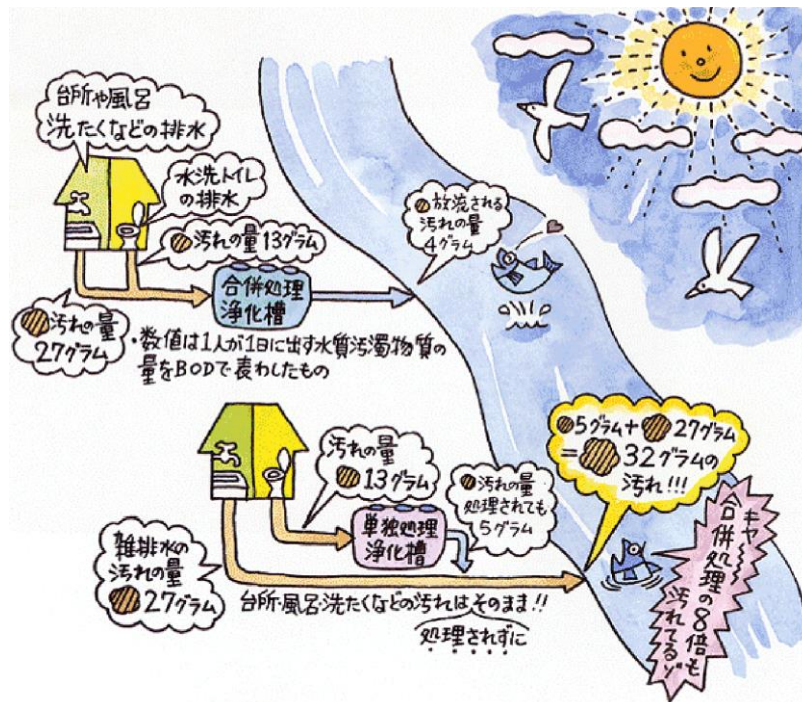 台所や風呂
洗たくなどの排水
水洗トイレ
の排水
汚れの量13グラム
合併処理
浄化槽
汚れの量
27グラム
放流される
汚れの量
4グラム
・数値は1人が1日に出す水質汚濁物質の
量をBODで表わしたもの
汚れの量
13グラム
単独処理
浄化槽
汚れの量
処理されても
5グラム
雑排水の
汚れの量
27グラム
台所・風呂・洗たくなどの汚れはそのまま!!
処理されずに
5グラム+27グラム
=32グラムの
汚れ!!!
キャ〜
合併処理の8倍も
汚れてるゾ